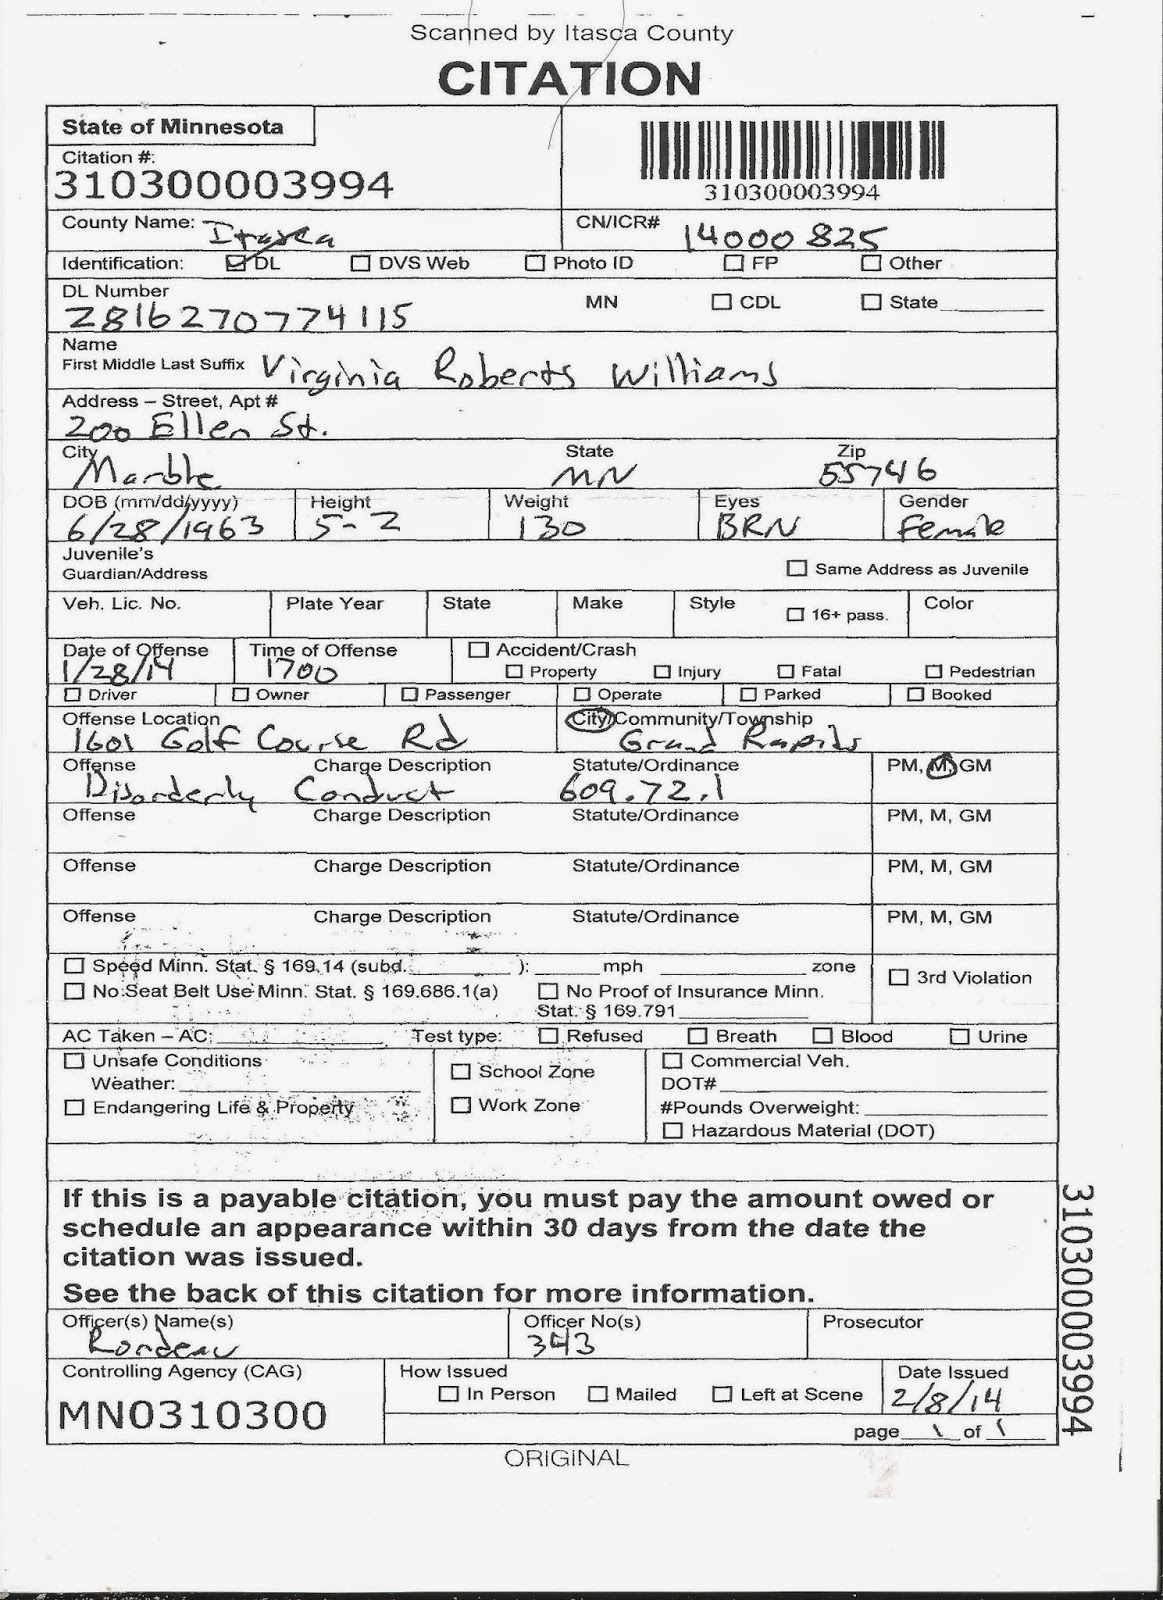 Scanned by Itasca County
CITATION
State of Minnesota
Citation #:
310300003994
310300003994
County Name: Itasca
CN/ICR# 14000825
Identification: DL DVS Web Photo ID FP Other
DL Number MN CDL State
Z816270774115
Name
First Middle Last Suffix Virginia Roberts Williams
Address – Street, Apt #
200 Ellen St.
City State Zip
Marble MN 55746
DOB (mm/dd/yyyy) Height Weight Eyes Gender
6/28/1963 5-2 130 BRN Female
Juvenile's
Guardian/Address Same Address as Juvenile
Veh. Lic. No. Plate Year State Make Style 16+ pass. Color
Date of Offense Time of Offense Accident/Crash
1/28/14 1700 Property Injury Fatal Pedestrian
Driver Owner Passenger Operate Parked Booked
Offense Location City/Community/Township
1601 Golf Course Rd Grand Rapids
Offense Charge Description Statute/Ordinance PM, M, GM
Disorderly Conduct 609.72.1
Offense Charge Description Statute/Ordinance PM, M, GM
Offense Charge Description Statute/Ordinance PM, M, GM
Offense Charge Description Statute/Ordinance PM, M, GM
Speed Minn. Stat. § 169.14 (subd. ): mph zone
3rd Violation
No Seat Belt Use Minn. Stat. § 169.686.1(a) No Proof of Insurance Minn.
Stat. § 169.791
AC Taken – AC: Test type: Refused Breath Blood Urine
Unsafe Conditions School Zone Commercial Veh.
Weather: DOT#
Endangering Life & Property Work Zone #Pounds Overweight:
Hazardous Material (DOT)
If this is a payable citation, you must pay the amount owed or
schedule an appearance within 30 days from the date the
citation was issued.
See the back of this citation for more information.
Officer(s) Name(s) Officer No(s) Prosecutor
Rondeau 343
Controlling Agency (CAG) How Issued Date Issued
MN0310300 In Person Mailed Left at Scene 2/8/14
page 1 of 1
ORIGINAL
310300003994